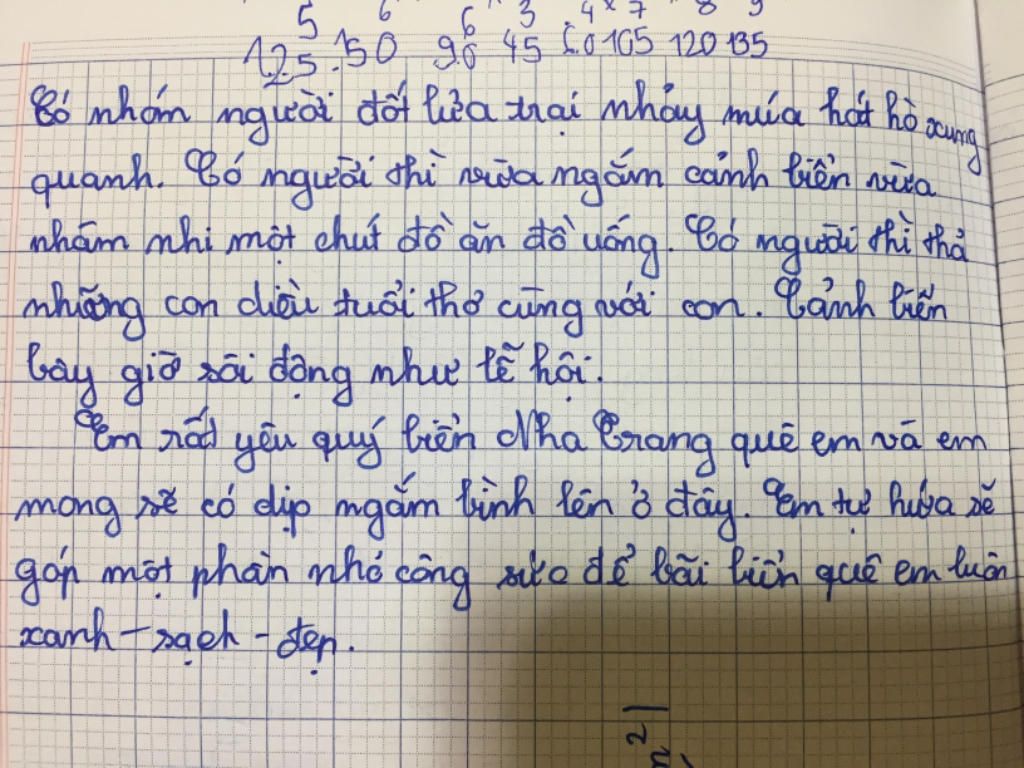 5 6 6 3 4 7 8 9
125 150 96 45 60 105 120 135
Có nhóm người đốt lửa trại nhảy múa hát hò xung
quanh. Có người thì vừa ngắm cảnh biển vừa
nhâm nhi một chút đồ ăn đồ uống. Có người thì thả
những con diều tuổi thơ cùng với con. Cảnh biển
bây giờ sôi động như lễ hội.
Em rất yêu quý biển Nha Trang quê em và em
mong sẽ có dịp ngắm bình lên ở đây. Em tự hứa sẽ
góp một phần nhỏ công sức để bãi biển quê em luôn
xanh - sạch - đẹp.